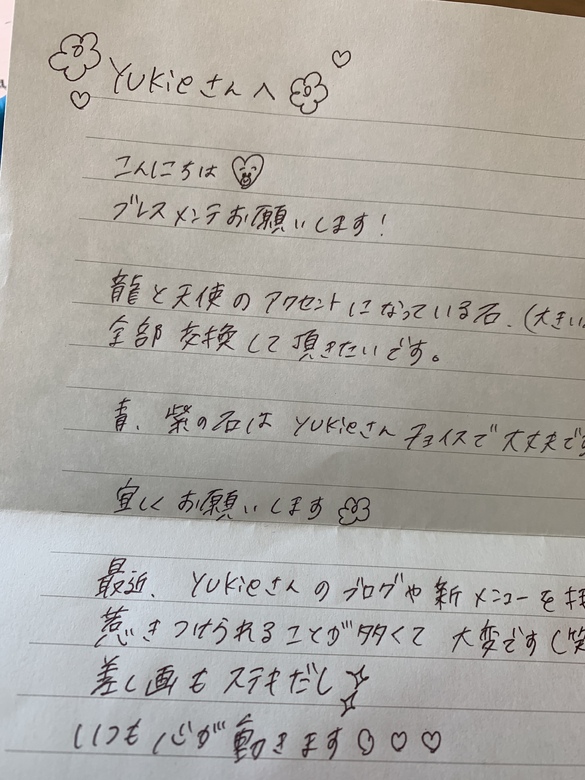 YUKieさんへ
こんにちは
ブレスメンテお願いします!
龍と天使のアクセントになっている石、(大きい
全部交換して頂きたいです。
青、紫の石はYUKieさんチョイスで大丈夫です
宜しくお願いします
最近、YUKieさんのブログや新メニューを
惹きつけられることが多くて大変です(笑
差し画もステキだし
いつも心が動きます